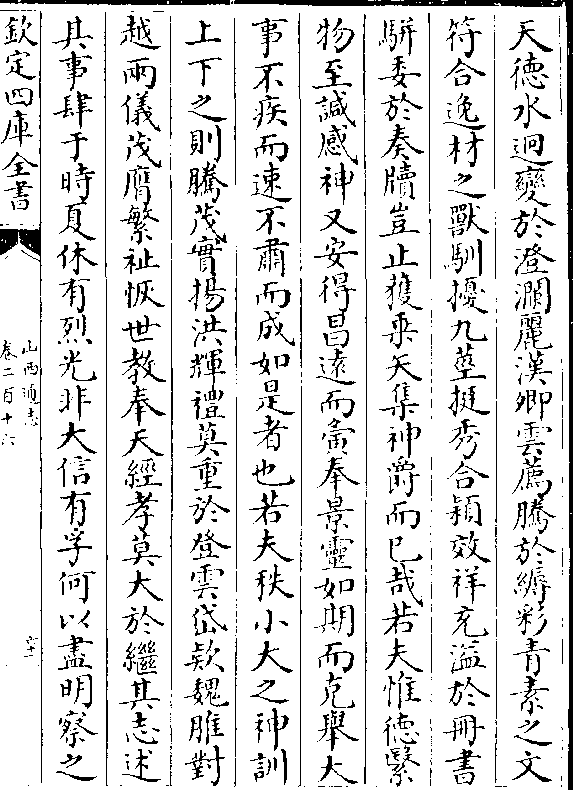 天德水迴變於澄瀾麗漢卿雲薦騰於縟彩青素之文
符合逸材之獸馴擾九莖挺秀合穎效祥充溢於冊書
駢委於奏牘豈止獲乘矢集神爵而已哉若夫惟德繄
物至諴感神又安得昌遠而彙奉景靈如期而克舉大
事不疾而速不肅而成如是者也若夫秩小大之神訓
上下之則騰茂實揚洪輝禮莫重於登雲岱欵魏脽對
越兩儀茂膺繁祉恢世教奉天經孝莫大於繼其志述
其事肆于時夏休有烈光非大信有孚何以盡明察之
欽定四庫全書
山西通志
卷二百十六